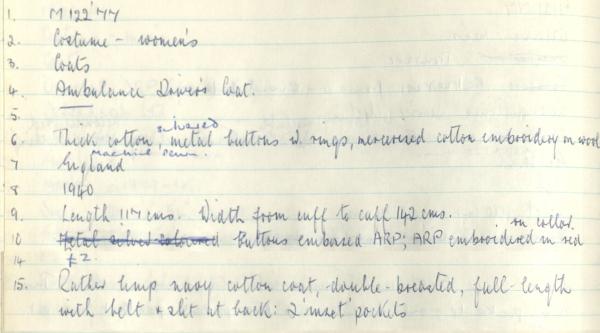 1. M122'77
2. Costume - women's
3. Coats
4. Ambulance Driver's Coat.
5.
silvered
6. Thick cotton, metal buttons w. rings, mercerised cotton embroidery on wool
machine sewn.
7 England
8 1940
9. Length 117 cms. Width from cuff to cuff 142 cms.
on collar.
10 Metal silver coloured Buttons embossed ARP; ARP embroidered in red
14 £2.
15. Rather limp navy cotton coat, double-breasted, full-length
with belt & slit at back: 2 'inset' pockets